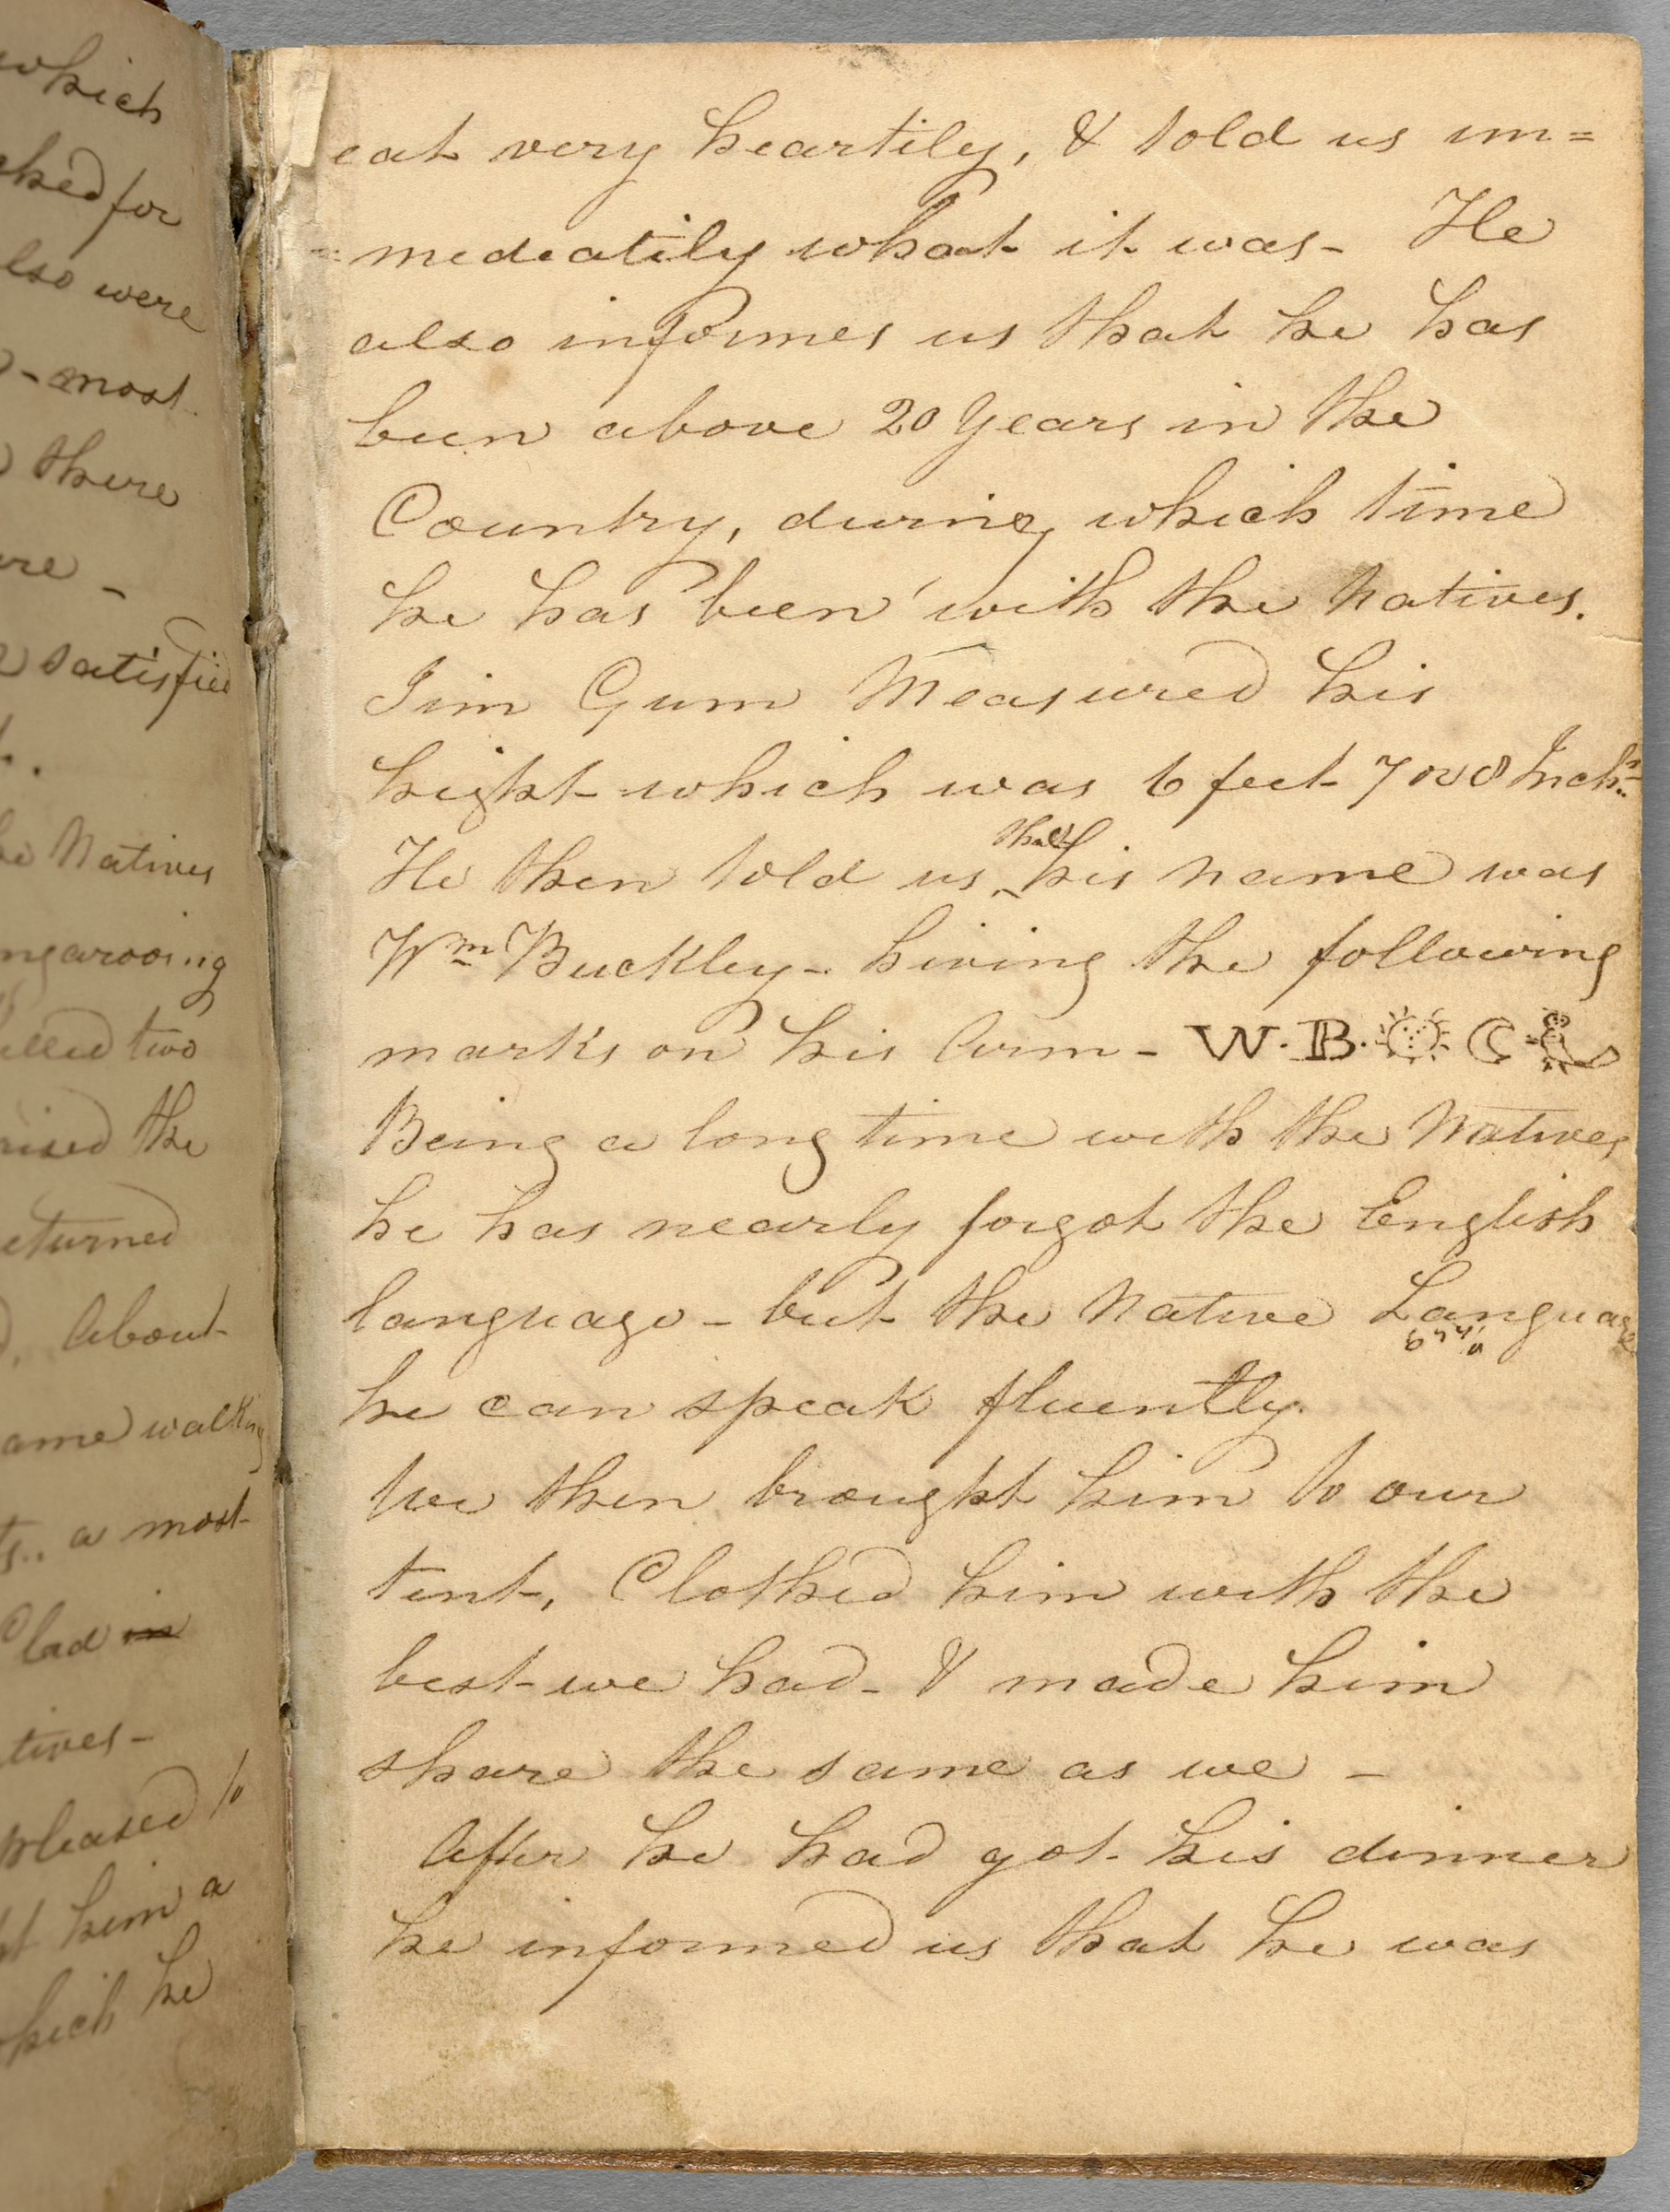 which
for
also were
most
there
satisfied
Natives
two
the
About
walking
a most
Clad in
pleased to
him a
which he
eat very heartily, & told us im=
=mediatily what it was - He
also informes us that he has
been above 20 Years in the
Country, during which time
he has been with the Natives.
Jim Gum Measured his
hight which was 6 feet 7 or 8 Inchs
He then told us that his name was
Wm Buckley - hiving the following
marks on his Arm - W. B.
Being a long time with the Natives
he has nearly forgot the English
language - but the Native Language
he can speak fluently.
We then brought him to our
tent, Clothed him with the
best we had - & made him
share the same as we -
After he had got his dinner
he informed us that he was